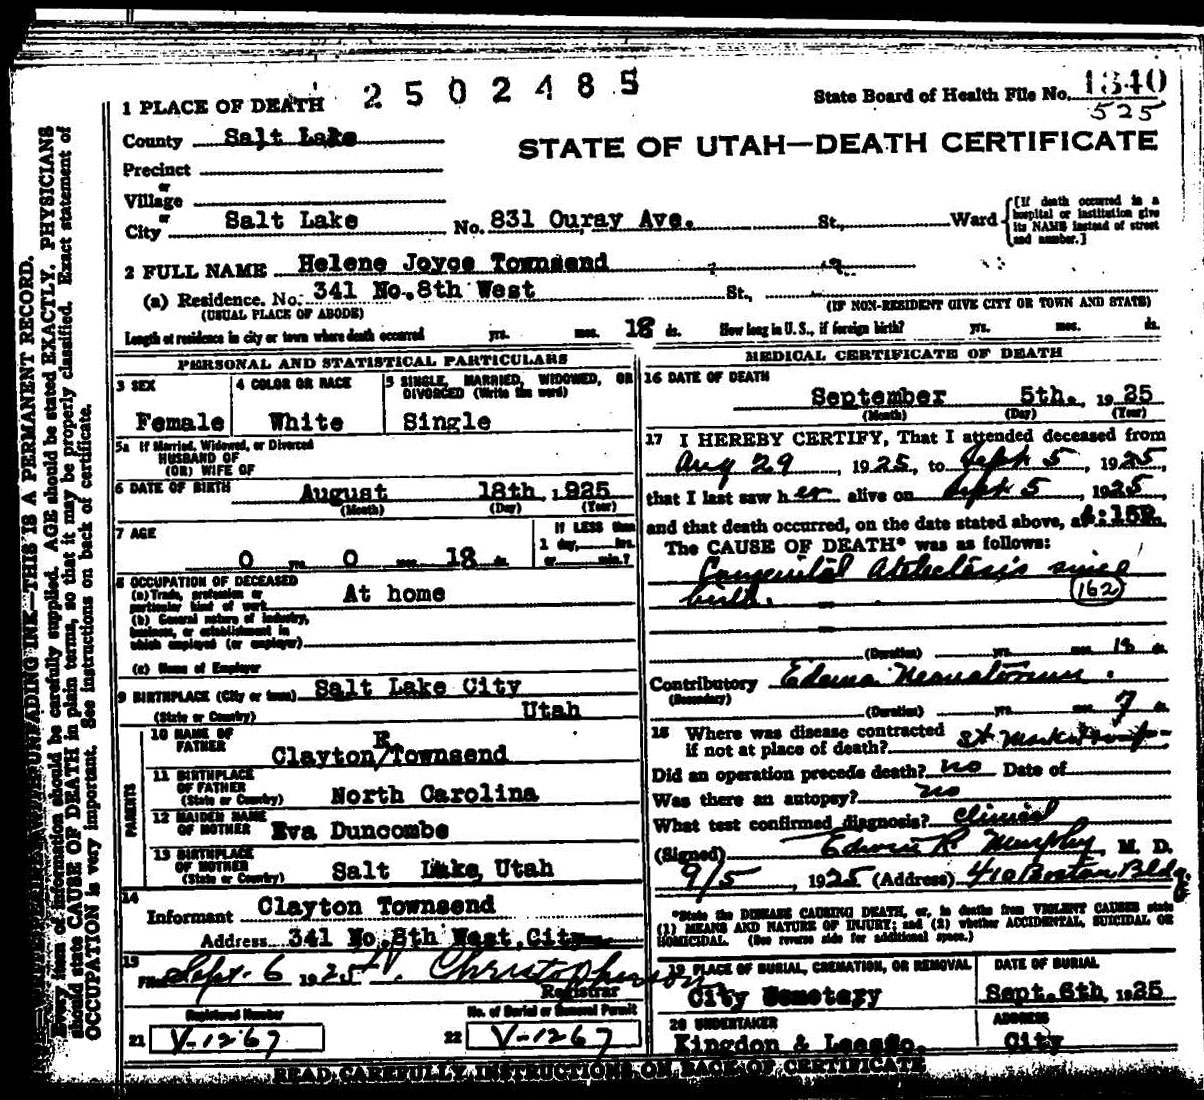 2502485
1 PLACE OF DEATH
State Board of Health File No. 1340
525
County Salt Lake
STATE OF UTAH—DEATH CERTIFICATE
Precinct
or
Village
or
City Salt Lake No. 831 Ouray Ave. St., Ward {[If death occurred in a hospital or institution give its NAME instead of street and number.]
2 FULL NAME Helene Joyce Townsend
(a) Residence. No. 341 No. 8th West St.,
(USUAL PLACE OF ABODE) (IF NON-RESIDENT GIVE CITY OR TOWN AND STATE)
Length of residence in city or town where death occurred yrs. mos. 18 ds. How long in U. S., if foreign birth? yrs. mos. ds.
PERSONAL AND STATISTICAL PARTICULARS
3 SEX
Female
4 COLOR OR RACE
White
5 SINGLE, MARRIED, WIDOWED, OR DIVORCED (Write the word)
Single
5a If Married, Widowed, or Divorced
HUSBAND OF
(OR) WIFE OF
6 DATE OF BIRTH August 18th, 1925
(Month) (Day) (Year)
7 AGE
0 yrs. 0 mos. 18 ds.
If LESS than
1 day, hrs.
or min.?
8 OCCUPATION OF DECEASED
(a) Trade, profession or
particular kind of work At home
(b) General nature of industry,
business, or establishment in
which employed (or employer)
(c) Name of Employer
9 BIRTHPLACE (City or town) Salt Lake City
(State or Country) Utah
PARENTS
10 NAME OF
FATHER
Clayton E Townsend
11 BIRTHPLACE
OF FATHER
(State or Country) North Carolina
12 MAIDEN NAME
OF MOTHER Eva Duncombe
13 BIRTHPLACE
OF MOTHER
(State or Country) Salt Lake, Utah
14
Informant Clayton Townsend
Address 341 No. 8th West City
15
Filed Sept. 6 1925 Christopherson
Registrar
Registered Number
21 V-1267
No. of Burial or Removal Permit
22 V-1267
MEDICAL CERTIFICATE OF DEATH
16 DATE OF DEATH
September 5th. 1925
(Month) (Day) (Year)
17 I HEREBY CERTIFY, That I attended deceased from
Aug 29, 1925, to Sept 5, 1925,
that I last saw her alive on Sept 5, 1925
and that death occurred, on the date stated above, at 4:15P m.
The CAUSE OF DEATH* was as follows:
Congenital Atelectasis since
birth. (162)
(Duration) yrs. mos. 18 ds.
Contributory Edema Neonatorum.
(Secondary)
(Duration) yrs. mos. 7 ds.
18 Where was disease contracted
if not at place of death? St Marks Hosp
Did an operation precede death? no Date of
Was there an autopsy? no
What test confirmed diagnosis? Clinical
(Signed) Edwin R Murphy, M. D.
9/5, 1925 (Address) 410 Boston Bldg
*State the DISEASE CAUSING DEATH, or, in deaths from VIOLENT CAUSES state
(1) MEANS AND NATURE OF INJURY; and (2) whether ACCIDENTAL, SUICIDAL OR
HOMICIDAL. (See reverse side for additional space.)
19 PLACE OF BURIAL, CREMATION, OR REMOVAL
City Cemetery
DATE OF BURIAL
Sept. 6th 1925
20 UNDERTAKER
Kingdon & Lees Co.
ADDRESS
City
READ CAREFULLY INSTRUCTIONS ON BACK OF CERTIFICATE
UNFADING INK—THIS IS A PERMANENT RECORD.
Every item of information should be carefully supplied. AGE should be stated EXACTLY. PHYSICIANS
should state CAUSE OF DEATH in plain terms, so that it may be properly classified. Exact statement of
OCCUPATION is very important. See instructions on back of certificate.